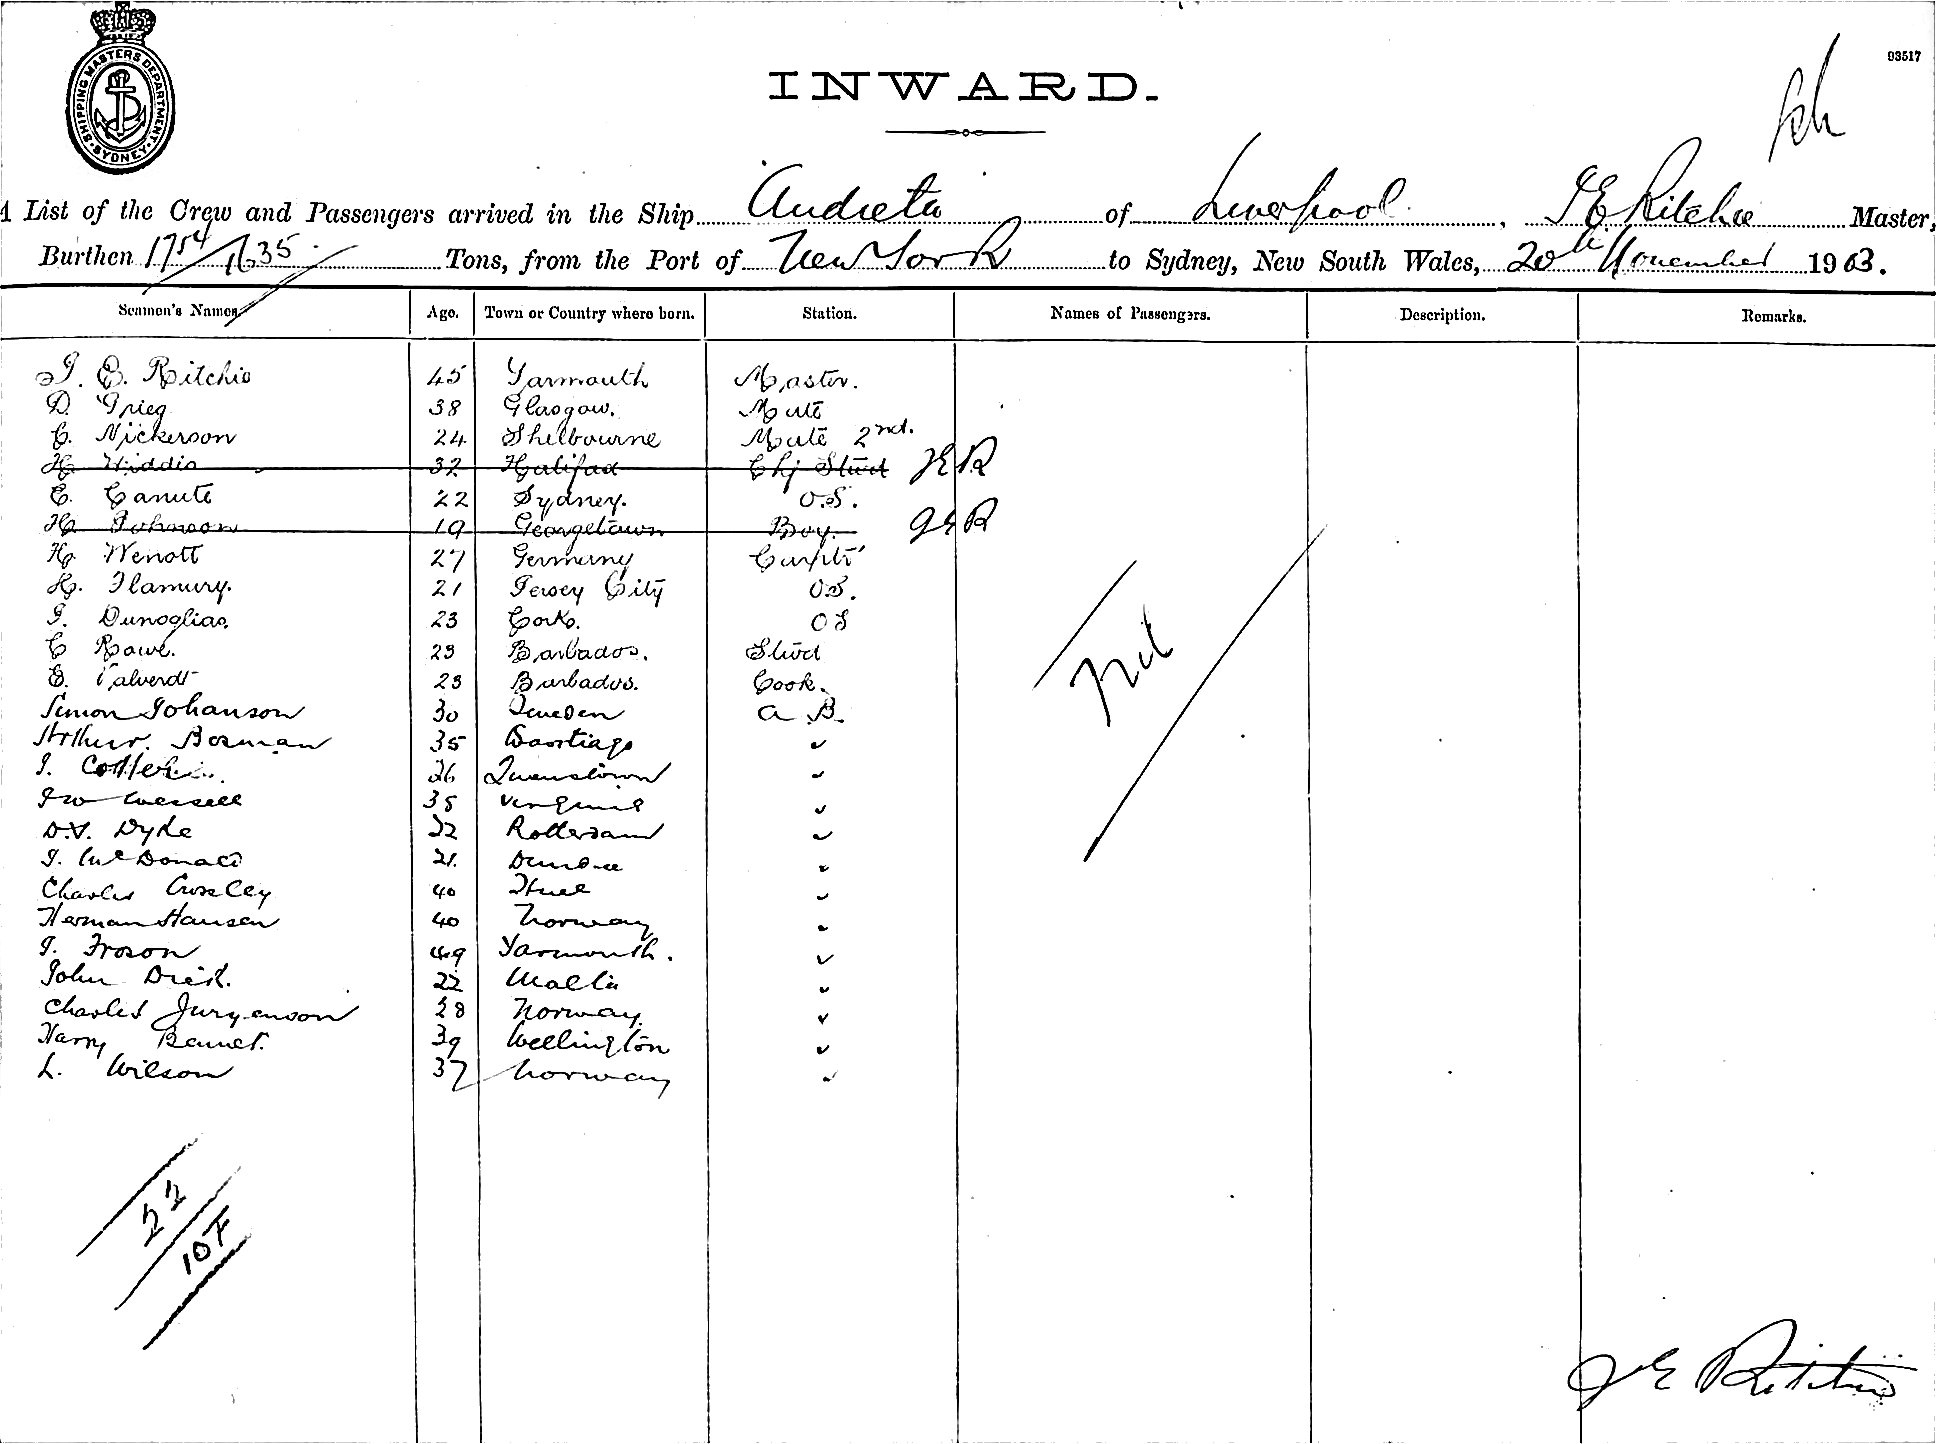 SHIPPING MASTERS DEPARTMENT. SYDNEY.
93517
INWARD.
A List of the Crew and Passengers arrived in the Ship Andreta of Liverpool, J E Ritchie Master,
Burthen 1754/1635 Tons, from the Port of New York to Sydney, New South Wales, 20th November 1903.
Seamen's Names. Age. Town or Country where born. Station. Names of Passengers. Description. Remarks.
J. E. Ritchie 45 Yarmouth Master.
D. Grieg 38 Glasgow. Mate
C. Nickerson 24 Shelbourne Mate 2nd.
H. Hiddie 32 Halifax Chf Stwd JER
E. Canute 22 Sydney. O.S.
H. Johnson 19 Georgetown Boy. JER
H. Wenott 27 Germany Carptr
H. Flamury. 21 Jersey City O.S.
J. Dunoglias. 23 Cork. OS
C Rowe. 23 Barbados. Stwd
E. Valverdt 23 Barbados. Cook.
Simon Johanson 30 Sweden A.B.
Arthur. Bosman 35 Santiago "
J. 26 Queenstown "
J W Wessell 38 Virginia "
D.V. Dyke 22 Rotterdam "
J. McDonald 21. Dundee "
Charles Crosley 40 Hull "
Herman Hansen 40 Norway "
J. Froson 49 Yarmouth. "
John Dick. 22 Malta "
Charles Jurgenson 28 Norway. "
Harry Bennet. 39 Wellington "
L. Wilson 37 Norway "
Nil
22
10 F
J E Ritchie